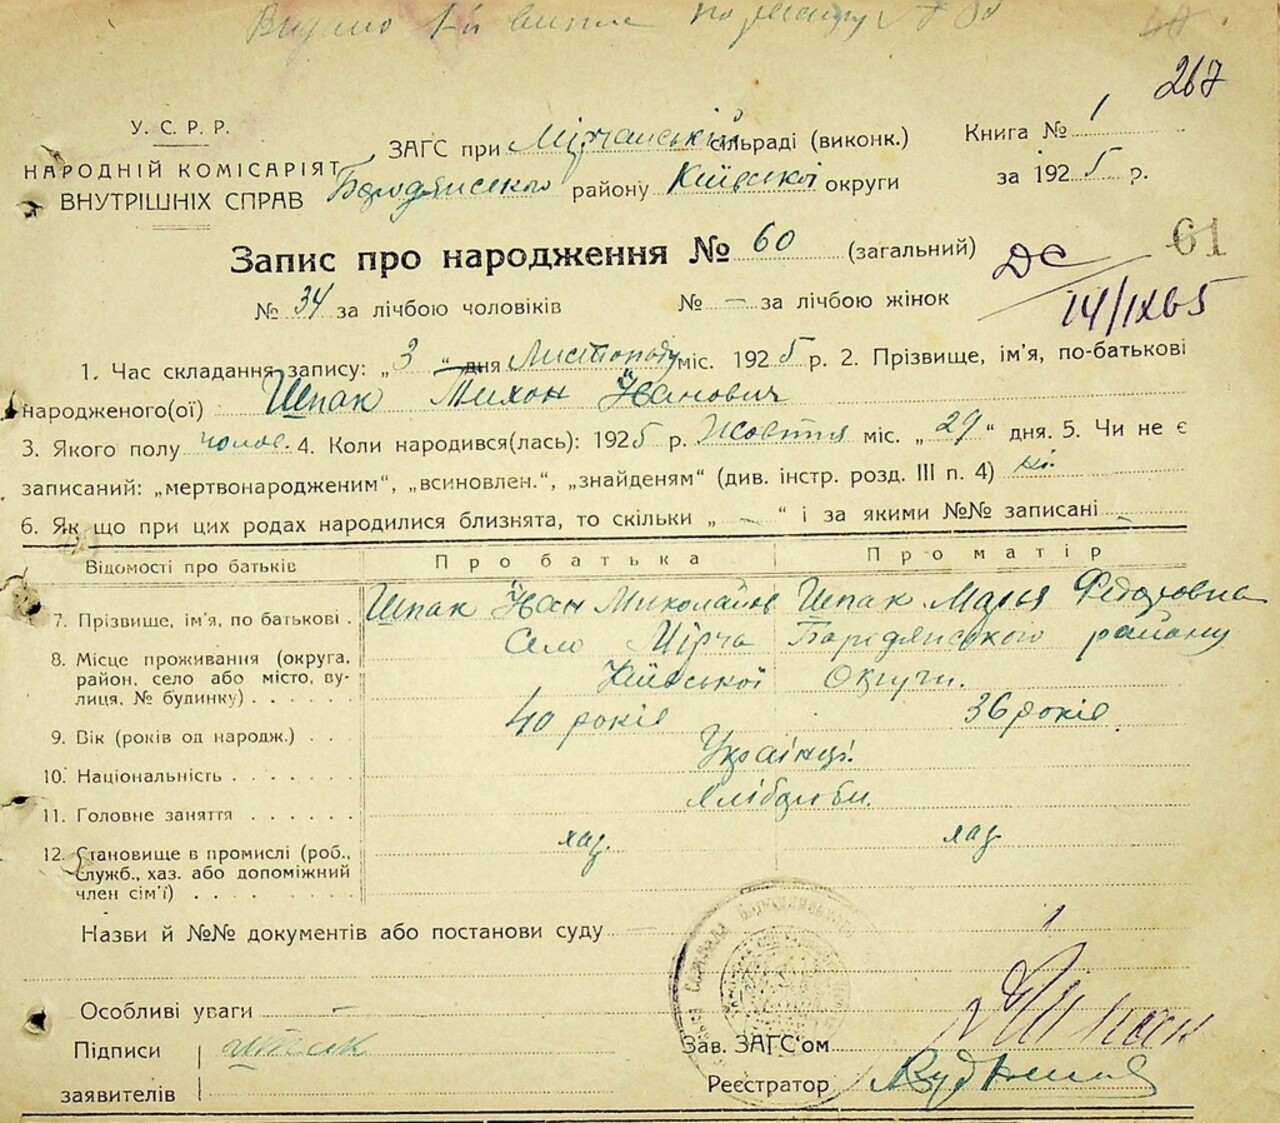 Видано 1-й випис
267
У. С. Р. Р.
НАРОДНІЙ КОМІСАРІЯТ
ВНУТРІШНІХ СПРАВ
ЗАГС при Мірчанській сільраді (виконк.)
Бородянського району Київської округи
Книга № 1
за 1925 р.
61
Запис про народження № 60 (загальний)
ДС
14/IX65
№ 34 за лічбою чоловіків № — за лічбою жінок
1. Час складання запису: „3“ дня Листопаду міс. 1925 р. 2. Прізвище, ім'я, по-батькові
народженого(ої) Шпак Тихон Іванович
3. Якого полу чолов. 4. Коли народився(лась): 1925 р. Жовтня міс. „29“ дня. 5. Чи не є
записаний: „мертвонародженим“, „всиновлен.“, „знайденям“ (див. інстр. розд. III п. 4) ні.
6. Як що при цих родах народилися близнята, то скільки „ — “ і за якими №№ записані —
Відомості про батьків Про батька Про матір
7. Прізвище, ім'я, по батькові . Шпак Іван Миколайов Шпак Марья Федоровна
8. Місце проживання (округа, Село Мірча Бородянського району
район, село або місто, ву- Київської Округи.
лиця, № будинку) . . . . . .
9. Вік (років од народж.) . . 40 років 36 років.
10. Національність . . . . . . Українці.
11. Головне заняття . . . . . . Хлібороби.
12. Становище в промислі (роб., хаз. хаз.
служб., хаз. або допоміжний
член сім'ї) . . . . . . . .
Назви й №№ документів або постанови суду —
Особливі уваги —
Підписи Шпак
заявителів
Зав. ЗАГС'ом Шпак
Реєстратор